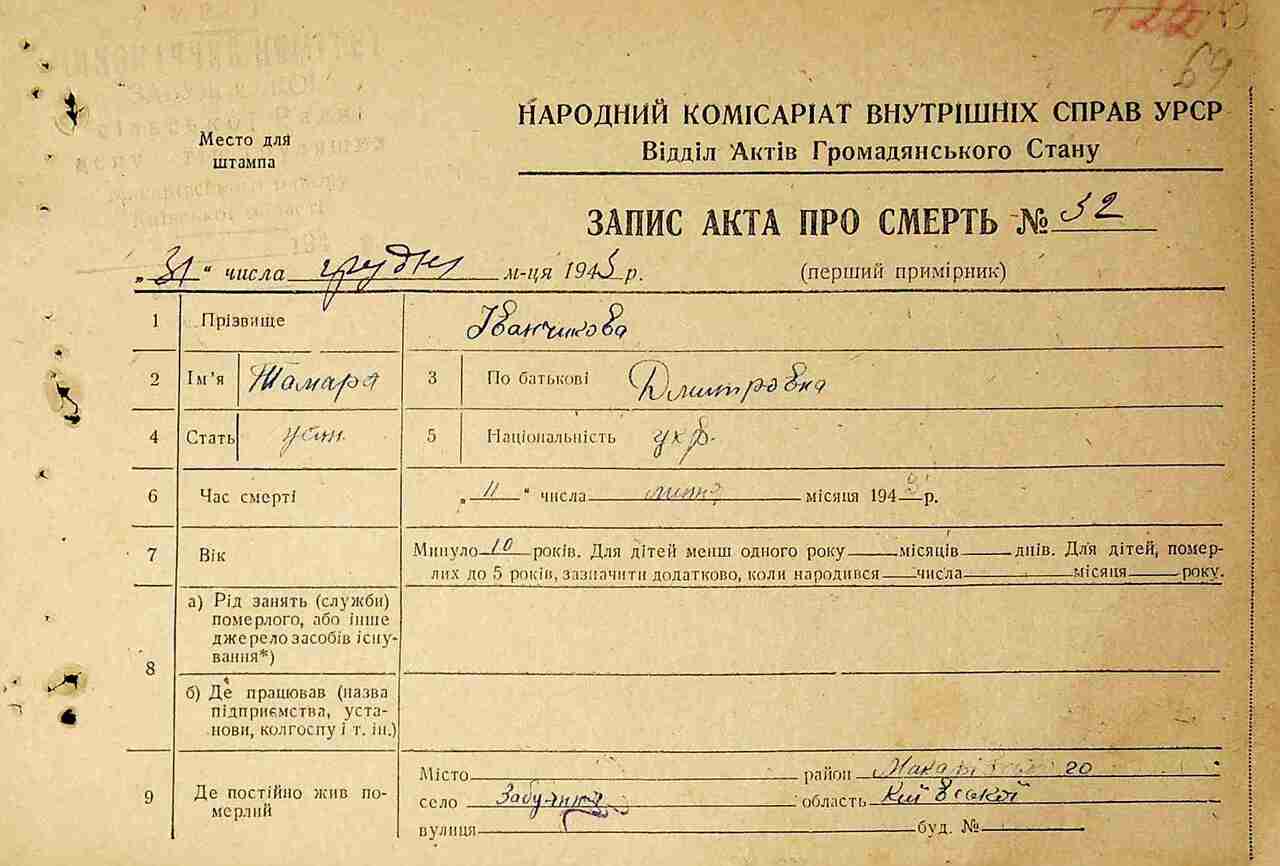 122
69
Место для
штампа
НАРОДНИЙ КОМІСАРІАТ ВНУТРІШНІХ СПРАВ УРСР
Відділ Актів Громадянського Стану
ЗАПИС АКТА ПРО СМЕРТЬ № 32
„31“ числа грудня м-ця 1943 р. (перший примірник)
1 Прізвище Іванчикова
2 Ім’я Тамара 3 По батькові Дмитровна
4 Стать 5 Національність укр.
6 Час смерті „11“ числа місяця 194 р.
7 Вік Минуло 10 років. Для дітей менш одного року місяців днів. Для дітей, помер-
лих до 5 років, зазначити додатково, коли народився числа місяця року.
8 а) Рід занять (служби)
померлого, або інше
джерело засобів існу-
вання*)
б) Де працював (назва
підприємства, уста-
нови, колгоспу і т. ін.)
9 Де постійно жив по-
мерлий
Місто район
село область Київської
вулиця буд. №